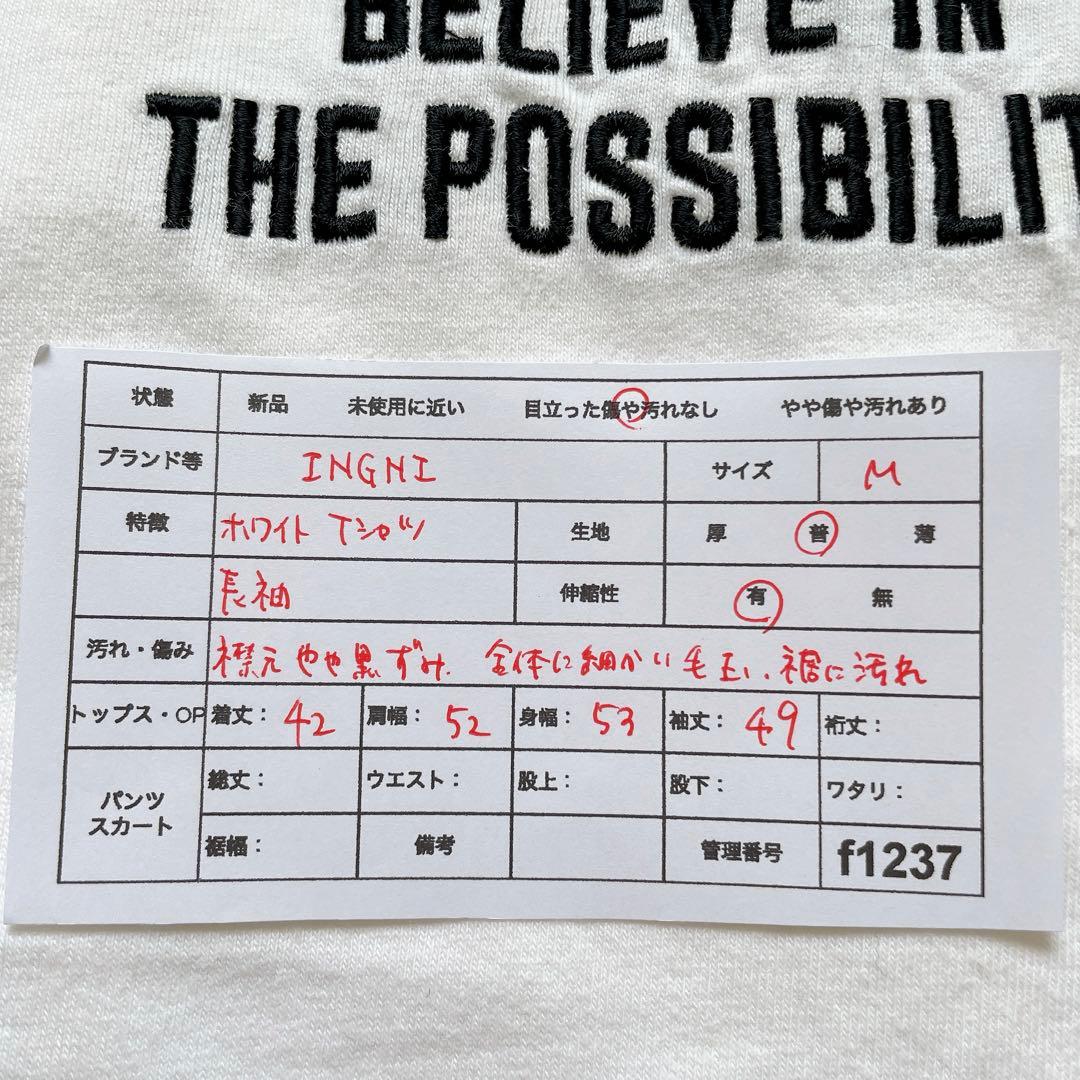 BELIEVE IN
THE POSSIBILIT
状態 新品 未使用に近い 目立った傷や汚れなし やや傷や汚れあり
ブランド等 INGNI サイズ M
特徴 ホワイト Tシャツ 生地 厚 普 薄
長袖 伸縮性 有 無
汚れ・傷み 襟元やや黒ずみ、全体に細かい毛玉い、裾に汚れ
トップス・OP 着丈: 42 肩幅: 52 身幅: 53 袖丈: 49 裄丈:
パンツ
スカート
総丈: ウエスト: 股上: 股下: ワタリ:
裾幅: 備考 管理番号 f1237